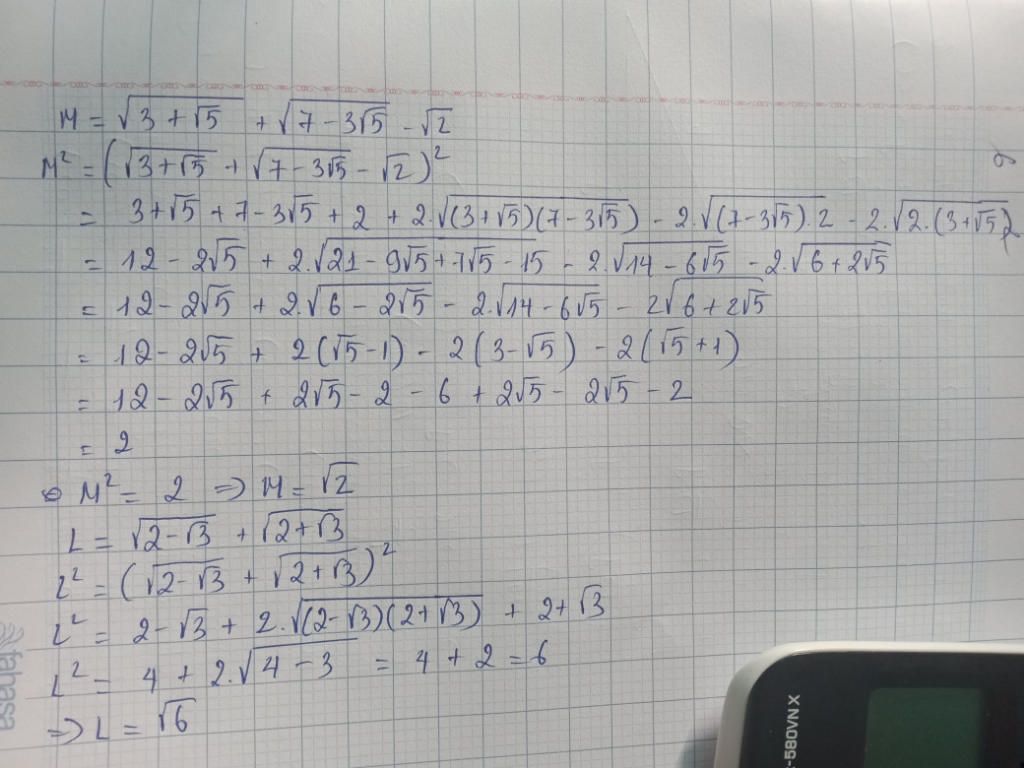 M = √(3 + √5) + √(7 - 3√5) - √2
M² = (√(3 + √5) + √(7 - 3√5) - √2)²
= 3 + √5 + 7 - 3√5 + 2 + 2.√((3 + √5)(7 - 3√5)) - 2.√((7 - 3√5).2) - 2.√(2.(3 + √5))
= 12 - 2√5 + 2.√(21 - 9√5 + 7√5 - 15) - 2.√(14 - 6√5) - 2.√(6 + 2√5)
= 12 - 2√5 + 2.√(6 - 2√5) - 2.√(14 - 6√5) - 2√(6 + 2√5)
= 12 - 2√5 + 2(√5 - 1) - 2(3 - √5) - 2(√5 + 1)
= 12 - 2√5 + 2√5 - 2 - 6 + 2√5 - 2√5 - 2
= 2
M² = 2 => M = √2
L = √(2 - √3) + √(2 + √3)
L² = (√(2 - √3) + √(2 + √3))²
L² = 2 - √3 + 2.√((2 - √3)(2 + √3)) + 2 + √3
L² = 4 + 2.√(4 - 3) = 4 + 2 = 6
=> L = √6
fahasa
-580VN X